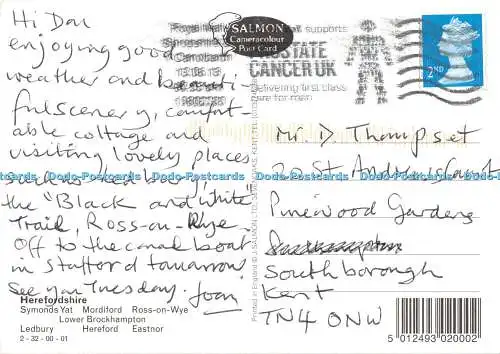 Hi Dan
enjoying good
weather and beauti-
ful scenery, comfort-
able cottage and
visiting lovely places
such as
the "Black and White"
Trail, Ross-on-Wye.
Off to the canal boat
in Stafford tomorrow
See you Tuesday. Joan
Herefordshire
Symonds Yat Mordiford Ross-on-Wye
Lower Brockhampton
Ledbury Hereford Eastnor
2-32-00-01
SALMON
Cameracolour
Post Card
Royal Mail supports
PROSTATE
CANCER UK
Delivering first class
care for men
2ND
PRINTED IN ENGLAND © J. SALMON LTD., SEVENOAKS, KENT
Mr. D Thompset
20 St Andrews Court
Pinewood Gardens
Southborough
Kent
TN4 0NW
5 012493 020002
Dodo-Postcards Dodo-Postcards Dodo-Postcards Dodo-Postcards Dodo-Postcards Dodo-Postcards